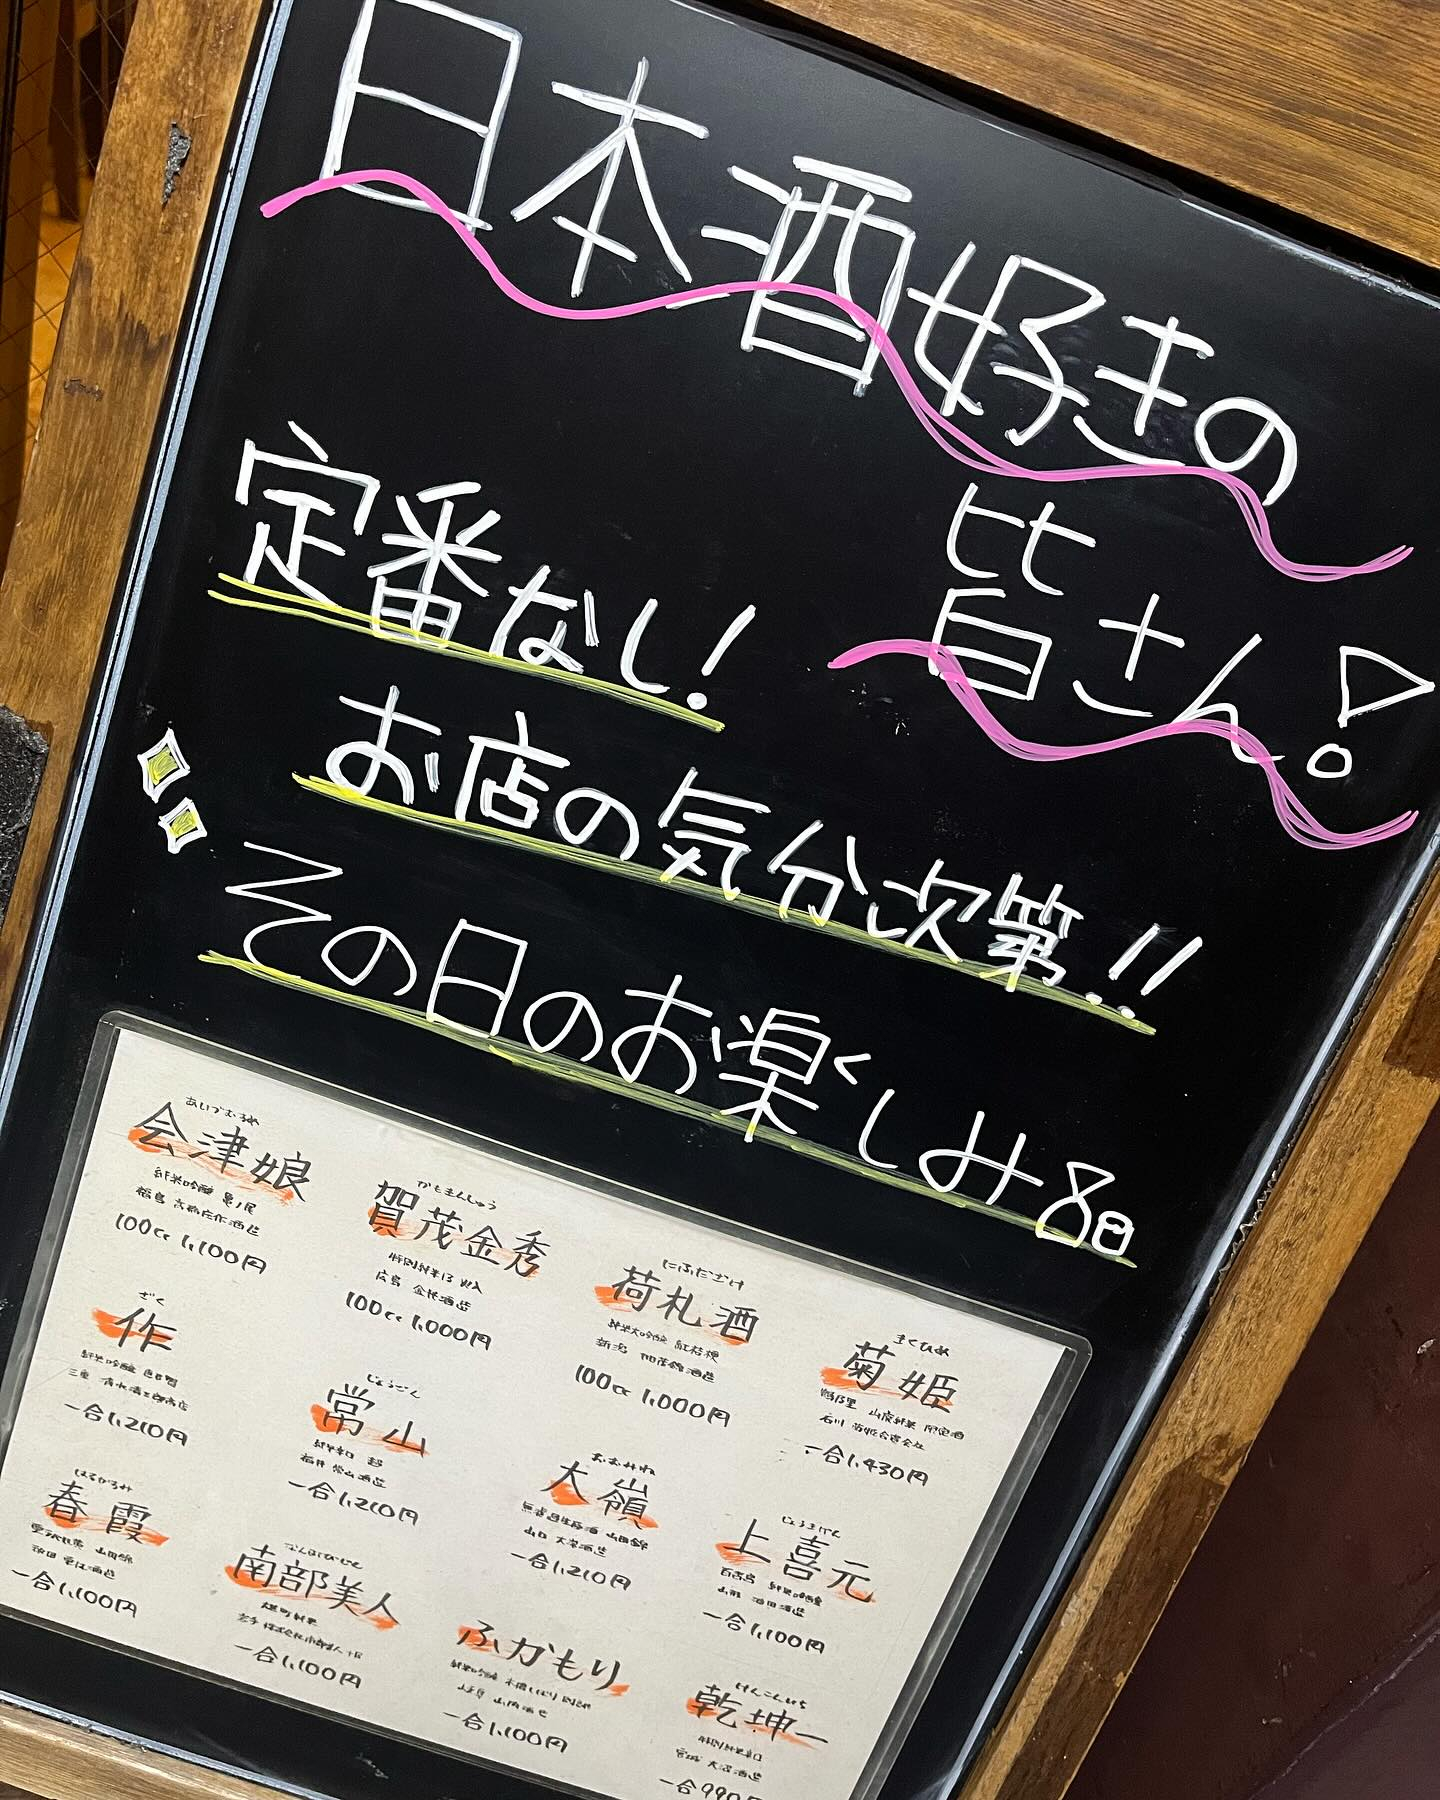 日本酒好きの
皆さん!
定番なし!
お店の気分次第!!
その日のお楽しみ品
あいづむすめ
会津娘
純米吟醸 亀ノ尾
福島 高橋庄作酒造
100cc 1,100円
かもきんしゅう
賀茂金秀
特別純米13
広島 金光酒造
100cc 1,000円
にふだざけ
荷札酒
純米大吟醸 紅桔梗
新潟 加茂錦酒造
100cc 1,000円
きくひめ
菊姫
鶴乃里 山廃純米 限定酒
石川 菊姫合資会社
一合1,430円
ざく
作
純米吟醸
三重 清水清三郎商店
一合1,210円
じょうざん
常山
純米辛口 超
福井 常山酒造
一合1,210円
おおみね
大嶺
山田錦
山口 大嶺酒造
一合1,210円
じょうきげん
上喜元
純米吟醸
山形 酒田酒造
一合1,100円
はるかすみ
春霞
山田錦
秋田 栗林酒造
一合1,100円
なんぶびじん
南部美人
雄町純米
岩手 株式会社南部美人
一合1,100円
ふかもり
純米吟醸 木桶しぼり
一合1,100円
けんこんいち
乾坤一
特別純米辛口
宮城 大沼酒造
一合990円